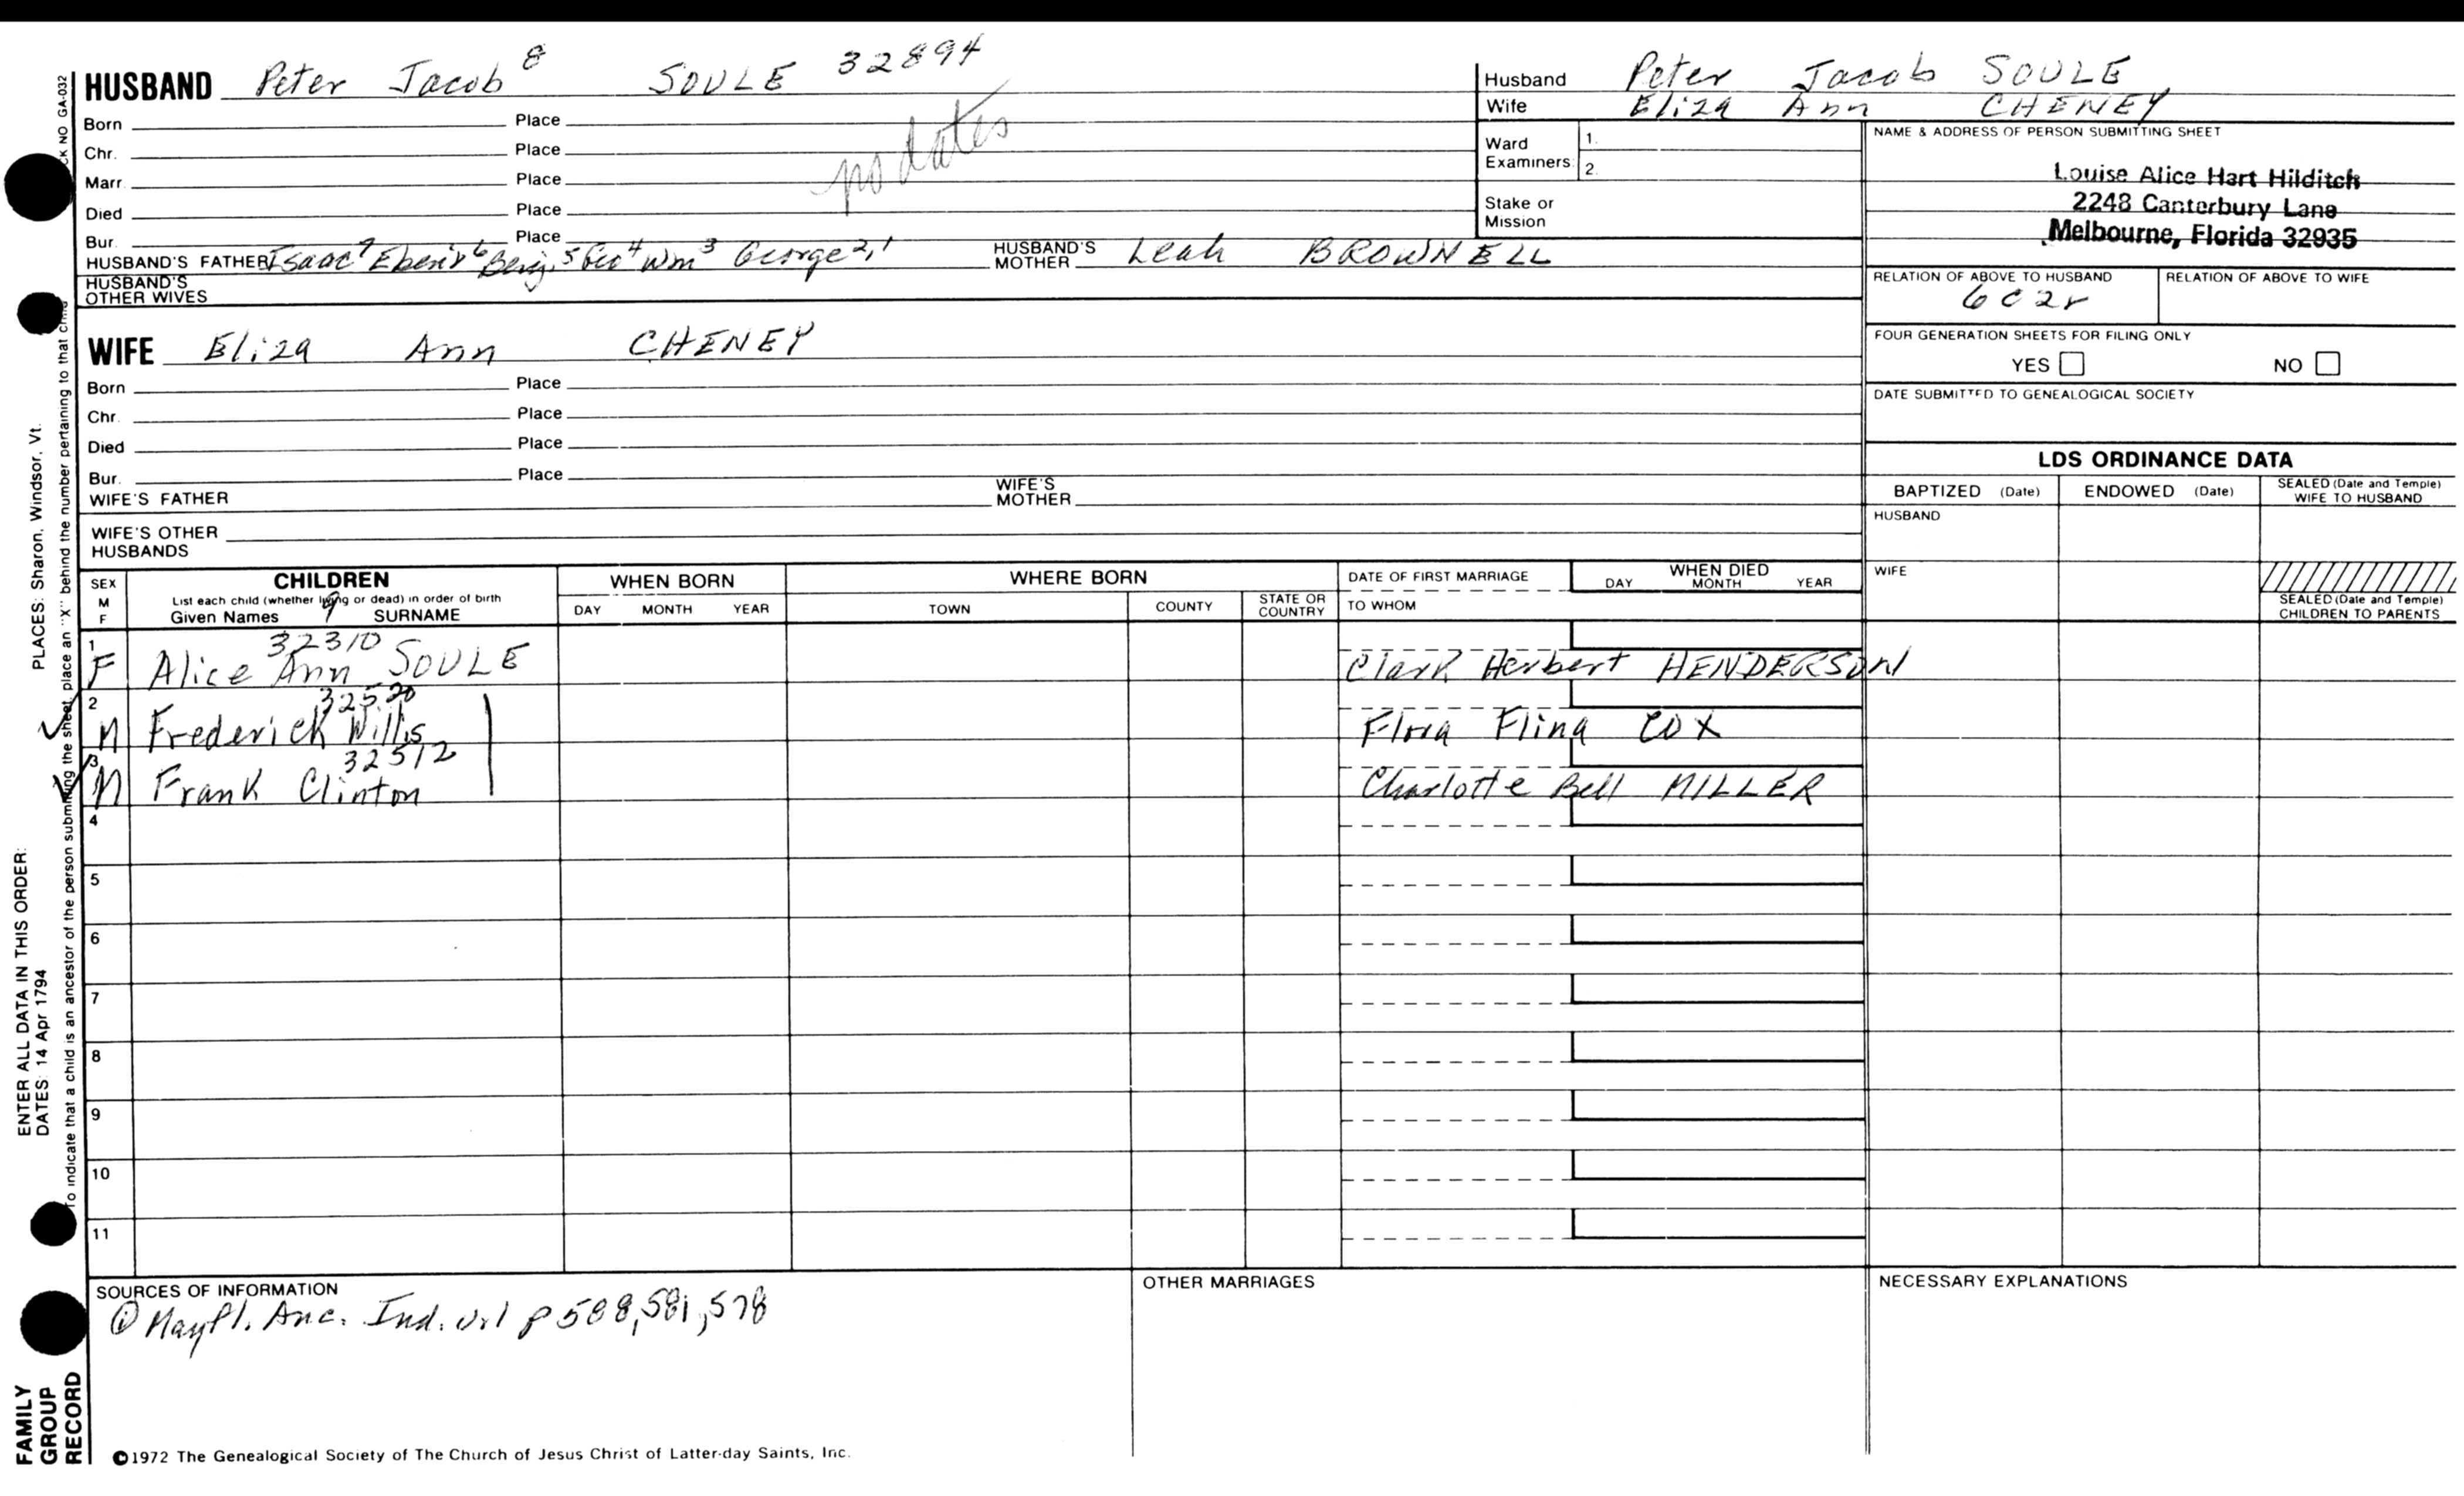 HUSBAND Peter Jacob 8 SOULE 32894
Born Place
Chr. Place
Marr. Place
no dates
Died Place
Bur. Place
HUSBAND'S FATHER Isaac7 Eben'r6 Benj.5 Geo4 Wm3 George2,1 HUSBAND'S MOTHER Leah BROWNELL
HUSBAND'S OTHER WIVES
WIFE Eliza Ann CHENEY
Born Place
Chr. Place
Died Place
Bur. Place
WIFE'S FATHER WIFE'S MOTHER
WIFE'S OTHER HUSBANDS
Husband Peter Jacob SOULE
Wife Eliza Ann CHENEY
Ward Examiners: 1.
2.
Stake or Mission
NAME & ADDRESS OF PERSON SUBMITTING SHEET
Louise Alice Hart Hilditch
2248 Canterbury Lane
Melbourne, Florida 32935
RELATION OF ABOVE TO HUSBAND RELATION OF ABOVE TO WIFE
6C2r
FOUR GENERATION SHEETS FOR FILING ONLY
YES NO
DATE SUBMITTED TO GENEALOGICAL SOCIETY
LDS ORDINANCE DATA
BAPTIZED (Date) ENDOWED (Date) SEALED (Date and Temple) WIFE TO HUSBAND
HUSBAND
WIFE
SEALED (Date and Temple) CHILDREN TO PARENTS
SEX M F
CHILDREN
List each child (whether living or dead) in order of birth
Given Names 9 SURNAME
WHEN BORN
DAY MONTH YEAR
WHERE BORN
TOWN COUNTY STATE OR COUNTRY
DATE OF FIRST MARRIAGE
TO WHOM
WHEN DIED
DAY MONTH YEAR
32310
1 F Alice Ann SOULE Clark Herbert HENDERSON
32520
2 M Frederick Willis Flora Flina COX
32512
3 M Frank Clinton Charlotte Bell MILLER
4
5
6
7
8
9
10
11
SOURCES OF INFORMATION
① Mayfl. Anc. Ind. vol p 588, 581, 578
OTHER MARRIAGES
NECESSARY EXPLANATIONS
©1972 The Genealogical Society of The Church of Jesus Christ of Latter-day Saints, Inc.
FAMILY
GROUP
RECORD
ENTER ALL DATA IN THIS ORDER:
DATES: 14 Apr 1794
PLACES: Sharon, Windsor, Vt.
To indicate that a child is an ancestor of the person submitting the sheet, place an "X" behind the number pertaining to that child
CK NO GA-032